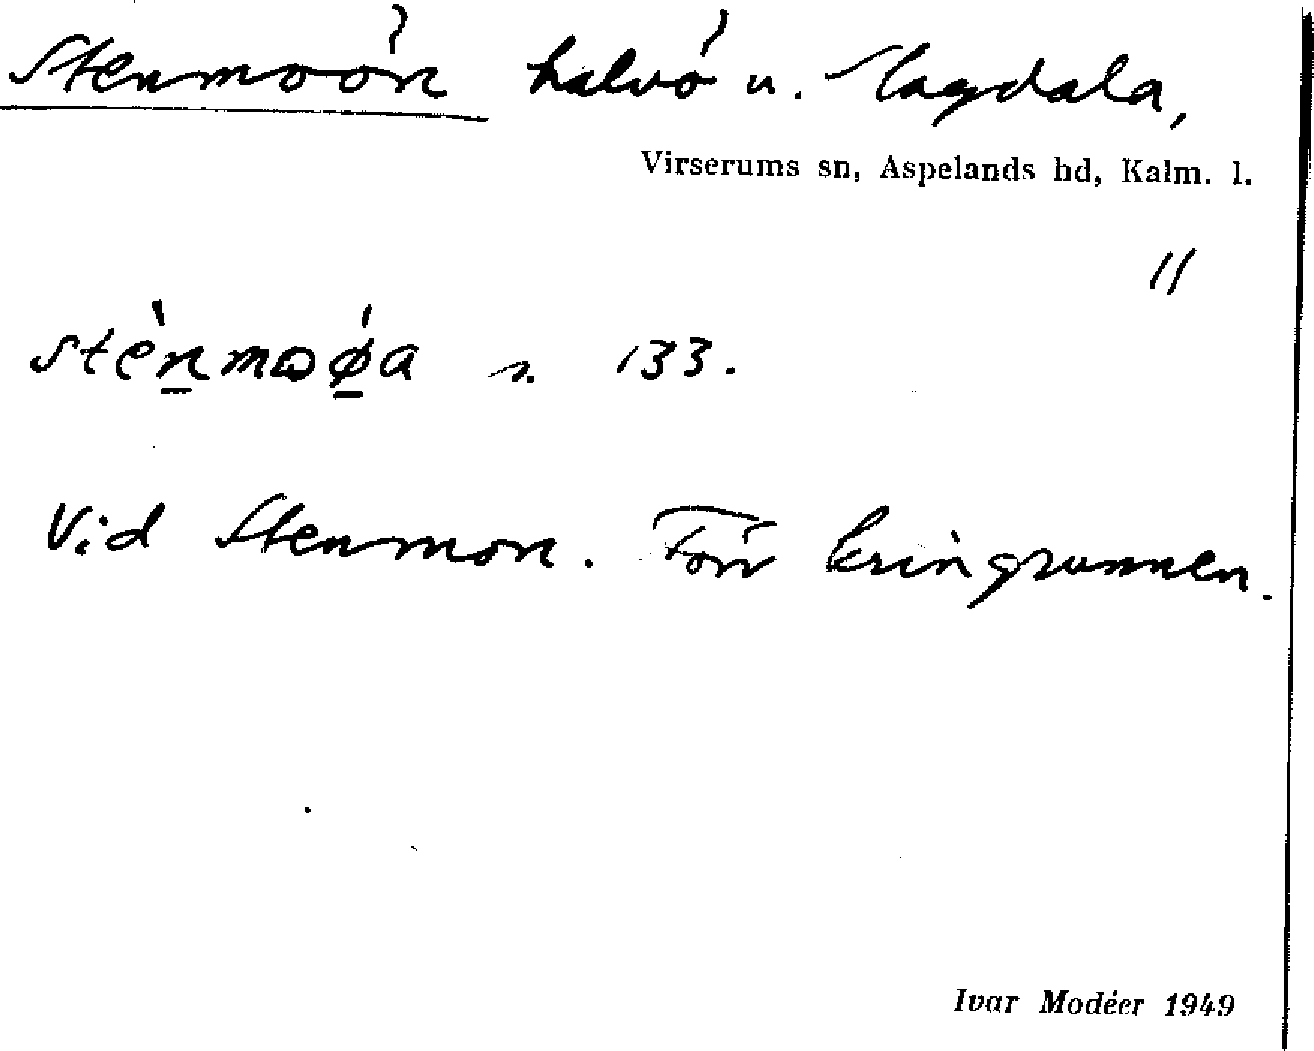 Stenmoön halvö u. Slagdala,
Virserums sn, Aspelands hd, Kalm. l.
"
s. 133.
Vid Stenmon. Förr kringrunnen.
Ivar Modéer 1949